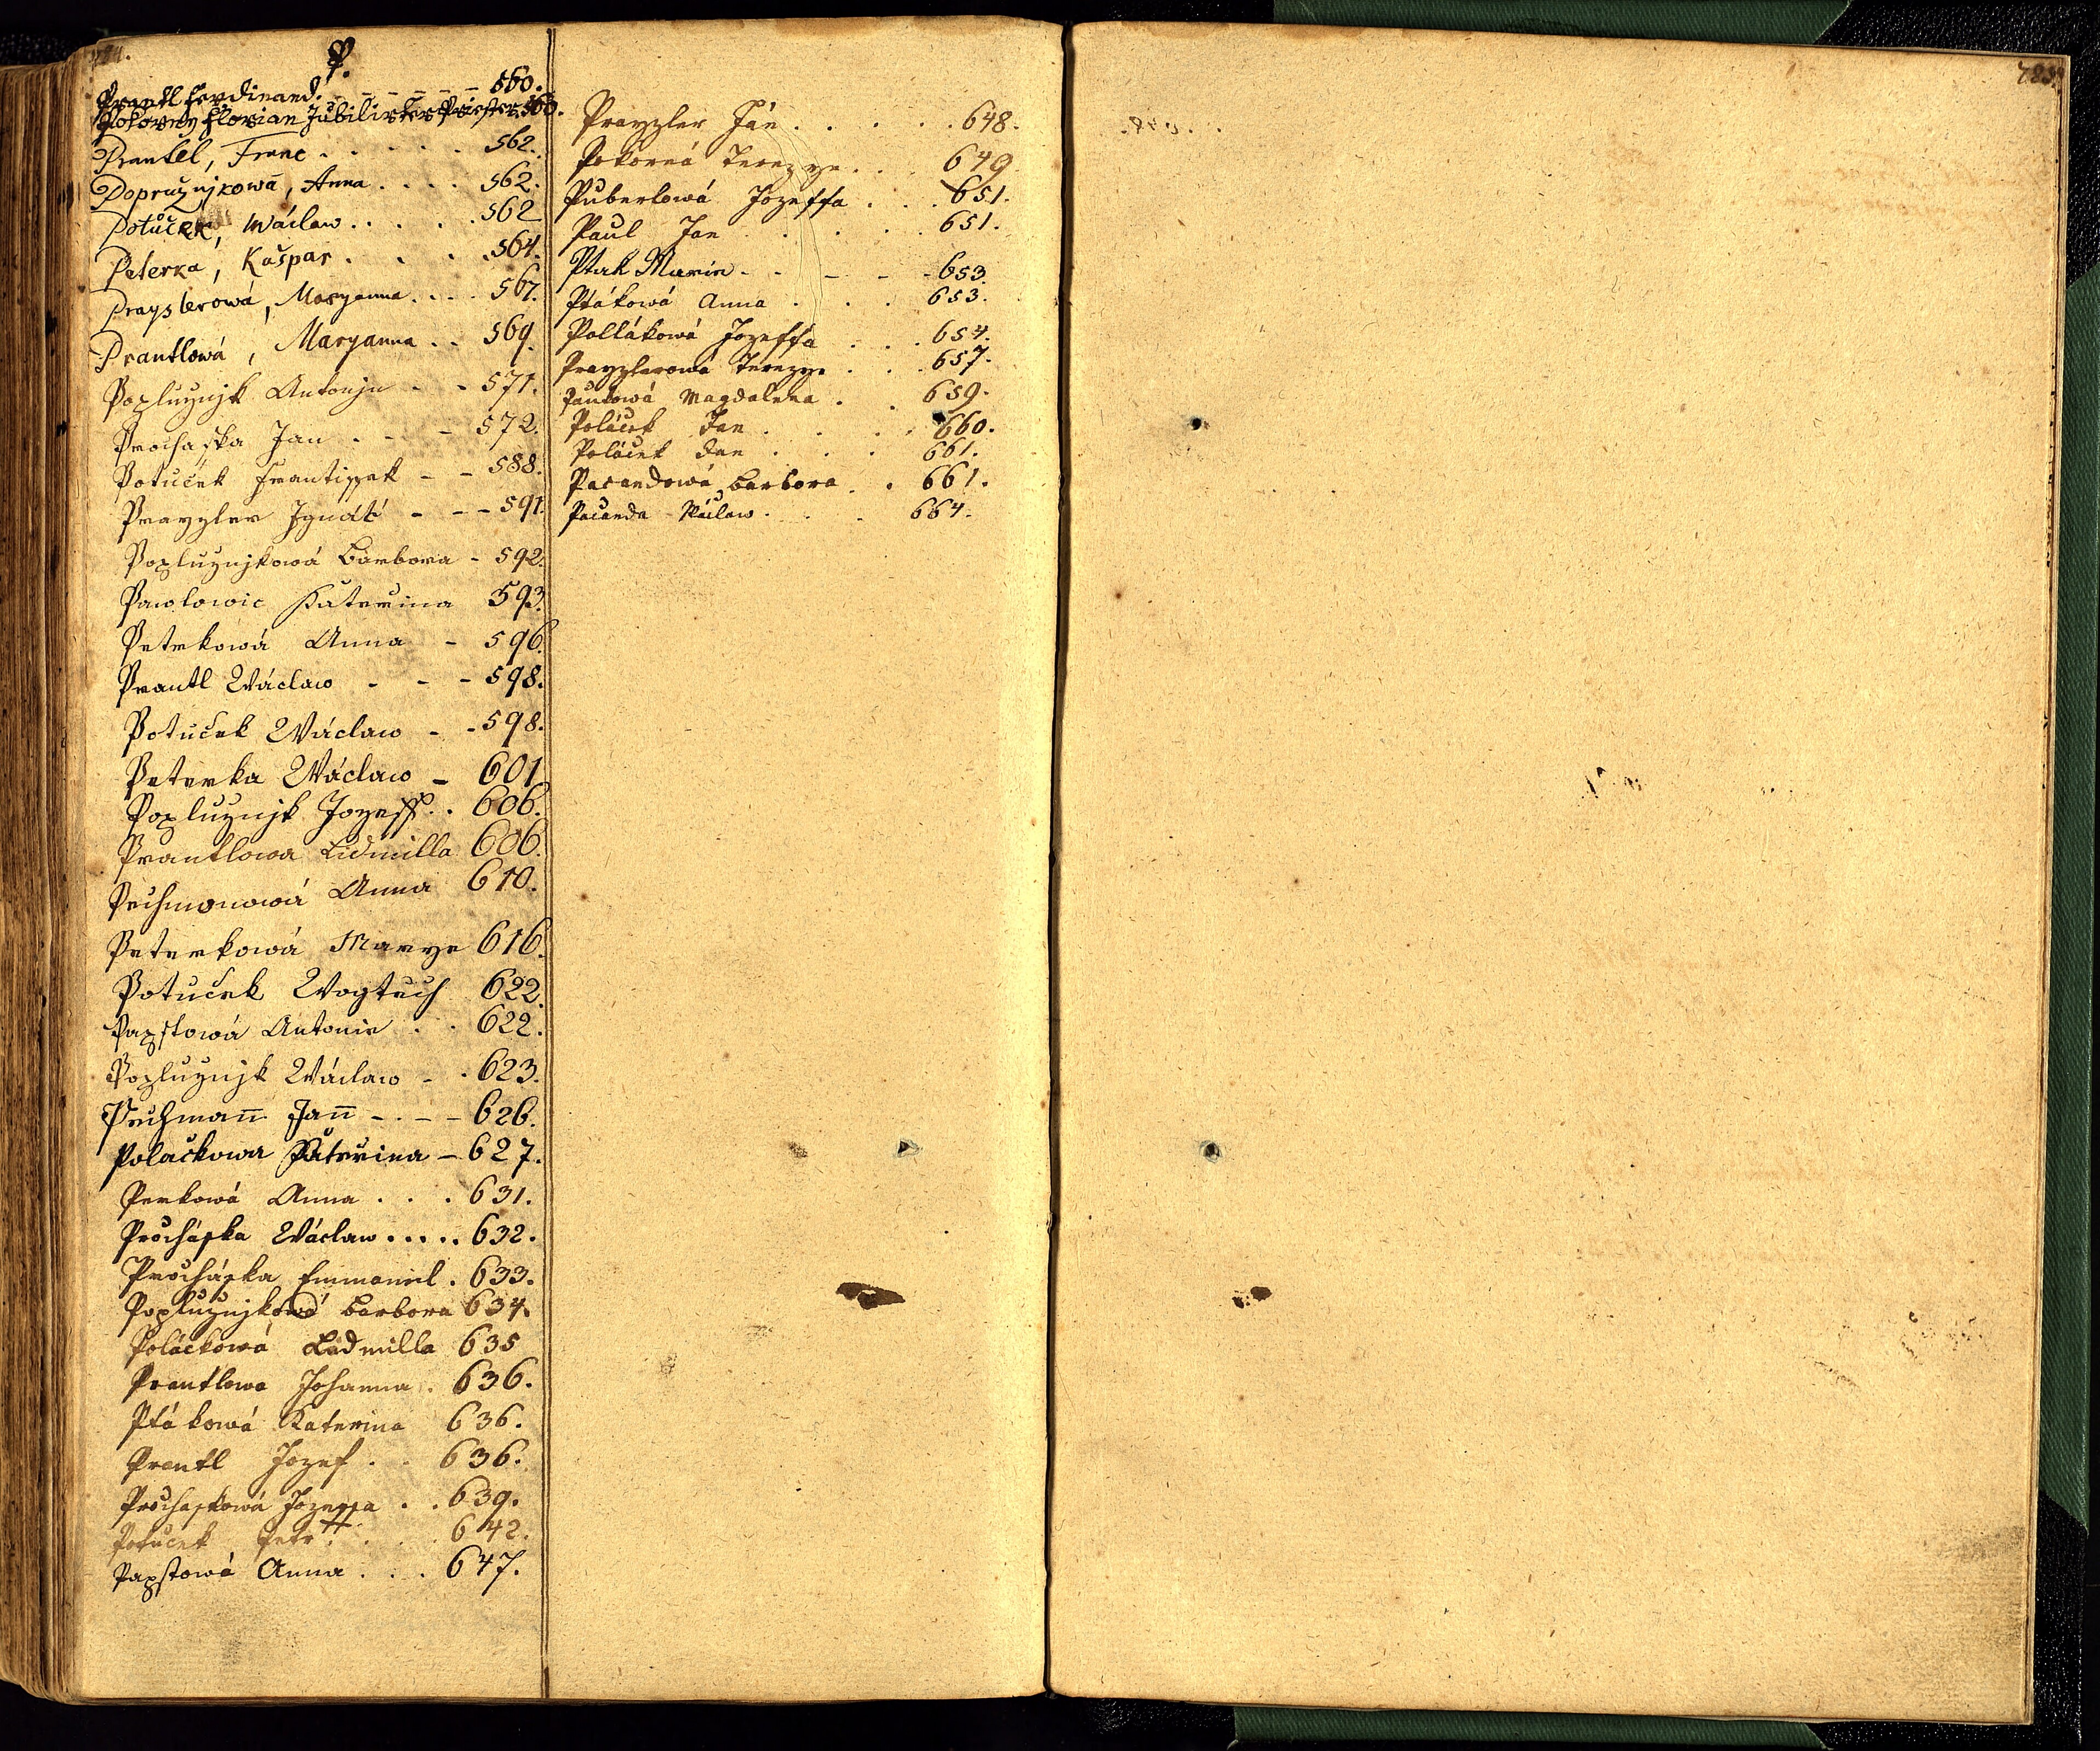 P.
Prantl Ferdinand. - - - - - - 560.
Pokorny Florian Jubilirter Priester 560.
Prantel, Franc . . . . . 562.
Popružnjkowá, Anna . . . . 562.
Potuček, Wáclaw . . . . . 562
Peterka, Kašpar . . . . 564.
Prayslerowá, Maryanna . . . . 567.
Prantlowá, Maryanna . . 569.
Popluznjk Antonjn - - 571.
Prochaska Jan . - - - 572.
Potuček Frantissek - - 588.
Prayzler Ignátz - - - 591.
Popluznjkowá Barbora - 592.
Pawlowic Katerina 593.
Petrkowá Anna - 596.
Prantl Wáclaw - - - 598.
Potuček Wáclaw - - 598.
Peterka Wáclaw - 601
Popluznjk Jozeff . . 606.
Prantlowa Lidmilla 606.
Pechmonowá Anna 610.
Peterkowá Marye 616.
Potuček Wogtech 622.
Papstowá Antonie . . 622.
Popluznjk Wáclaw - . 623.
Pechman̄ Jan̄ - . - - 626.
Polačkowa Kateřina - 627.
Perkowá Anna . . . 631.
Procháska Wáclaw ..... 632.
Procháska Emmanuel . 633.
Popluznjkowá Barbora 634.
Poláčkowá Lidmilla 635
Prantlowa Johanna . 636.
Ptákowá Katerina 636.
Prantl Jozef . . 636.
Prochaskowá Jozeffa . . 639.
Potuček Petr . . . . 642.
Papstowá Anna . . . 647.
Prayzler Ján . . . . . 648.
Pokorná Terezye . . . 649
Puberlowá Jozeffa . . . 651.
Paul Jan . . . . . 651.
Ptak Marie - . - - - 653.
Ptákowá Anna . . . 653.
Pollákowá Jozeffa . . . 654.
Prayzlerowá Terezye . . . 657.
Paulowá Magdaléna . . 659.
Poláček Jan . . . . 660.
Poláček Jan . . . 661.
Pacandowá Barbora . . 661.
Pacanda Wáclaw . . . 664.
723.